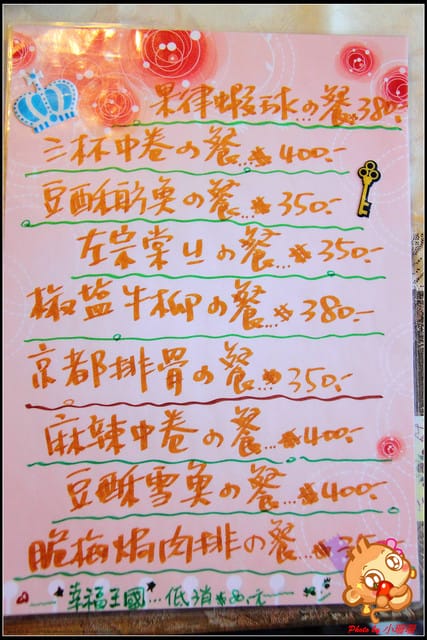 果律蝦球の餐380.-
三杯中卷の餐...$400.-
豆酥鱈魚の餐...$350.-
左宗棠ㄐㄩの餐...$350.-
椒鹽牛柳の餐...$380.-
京都排骨の餐...$350.-
麻辣中卷の餐...$400.-
豆酥雪魚の餐...$400.-
脆梅焗肉排の餐...$
幸福王國...低消$80.元
Photo by 小